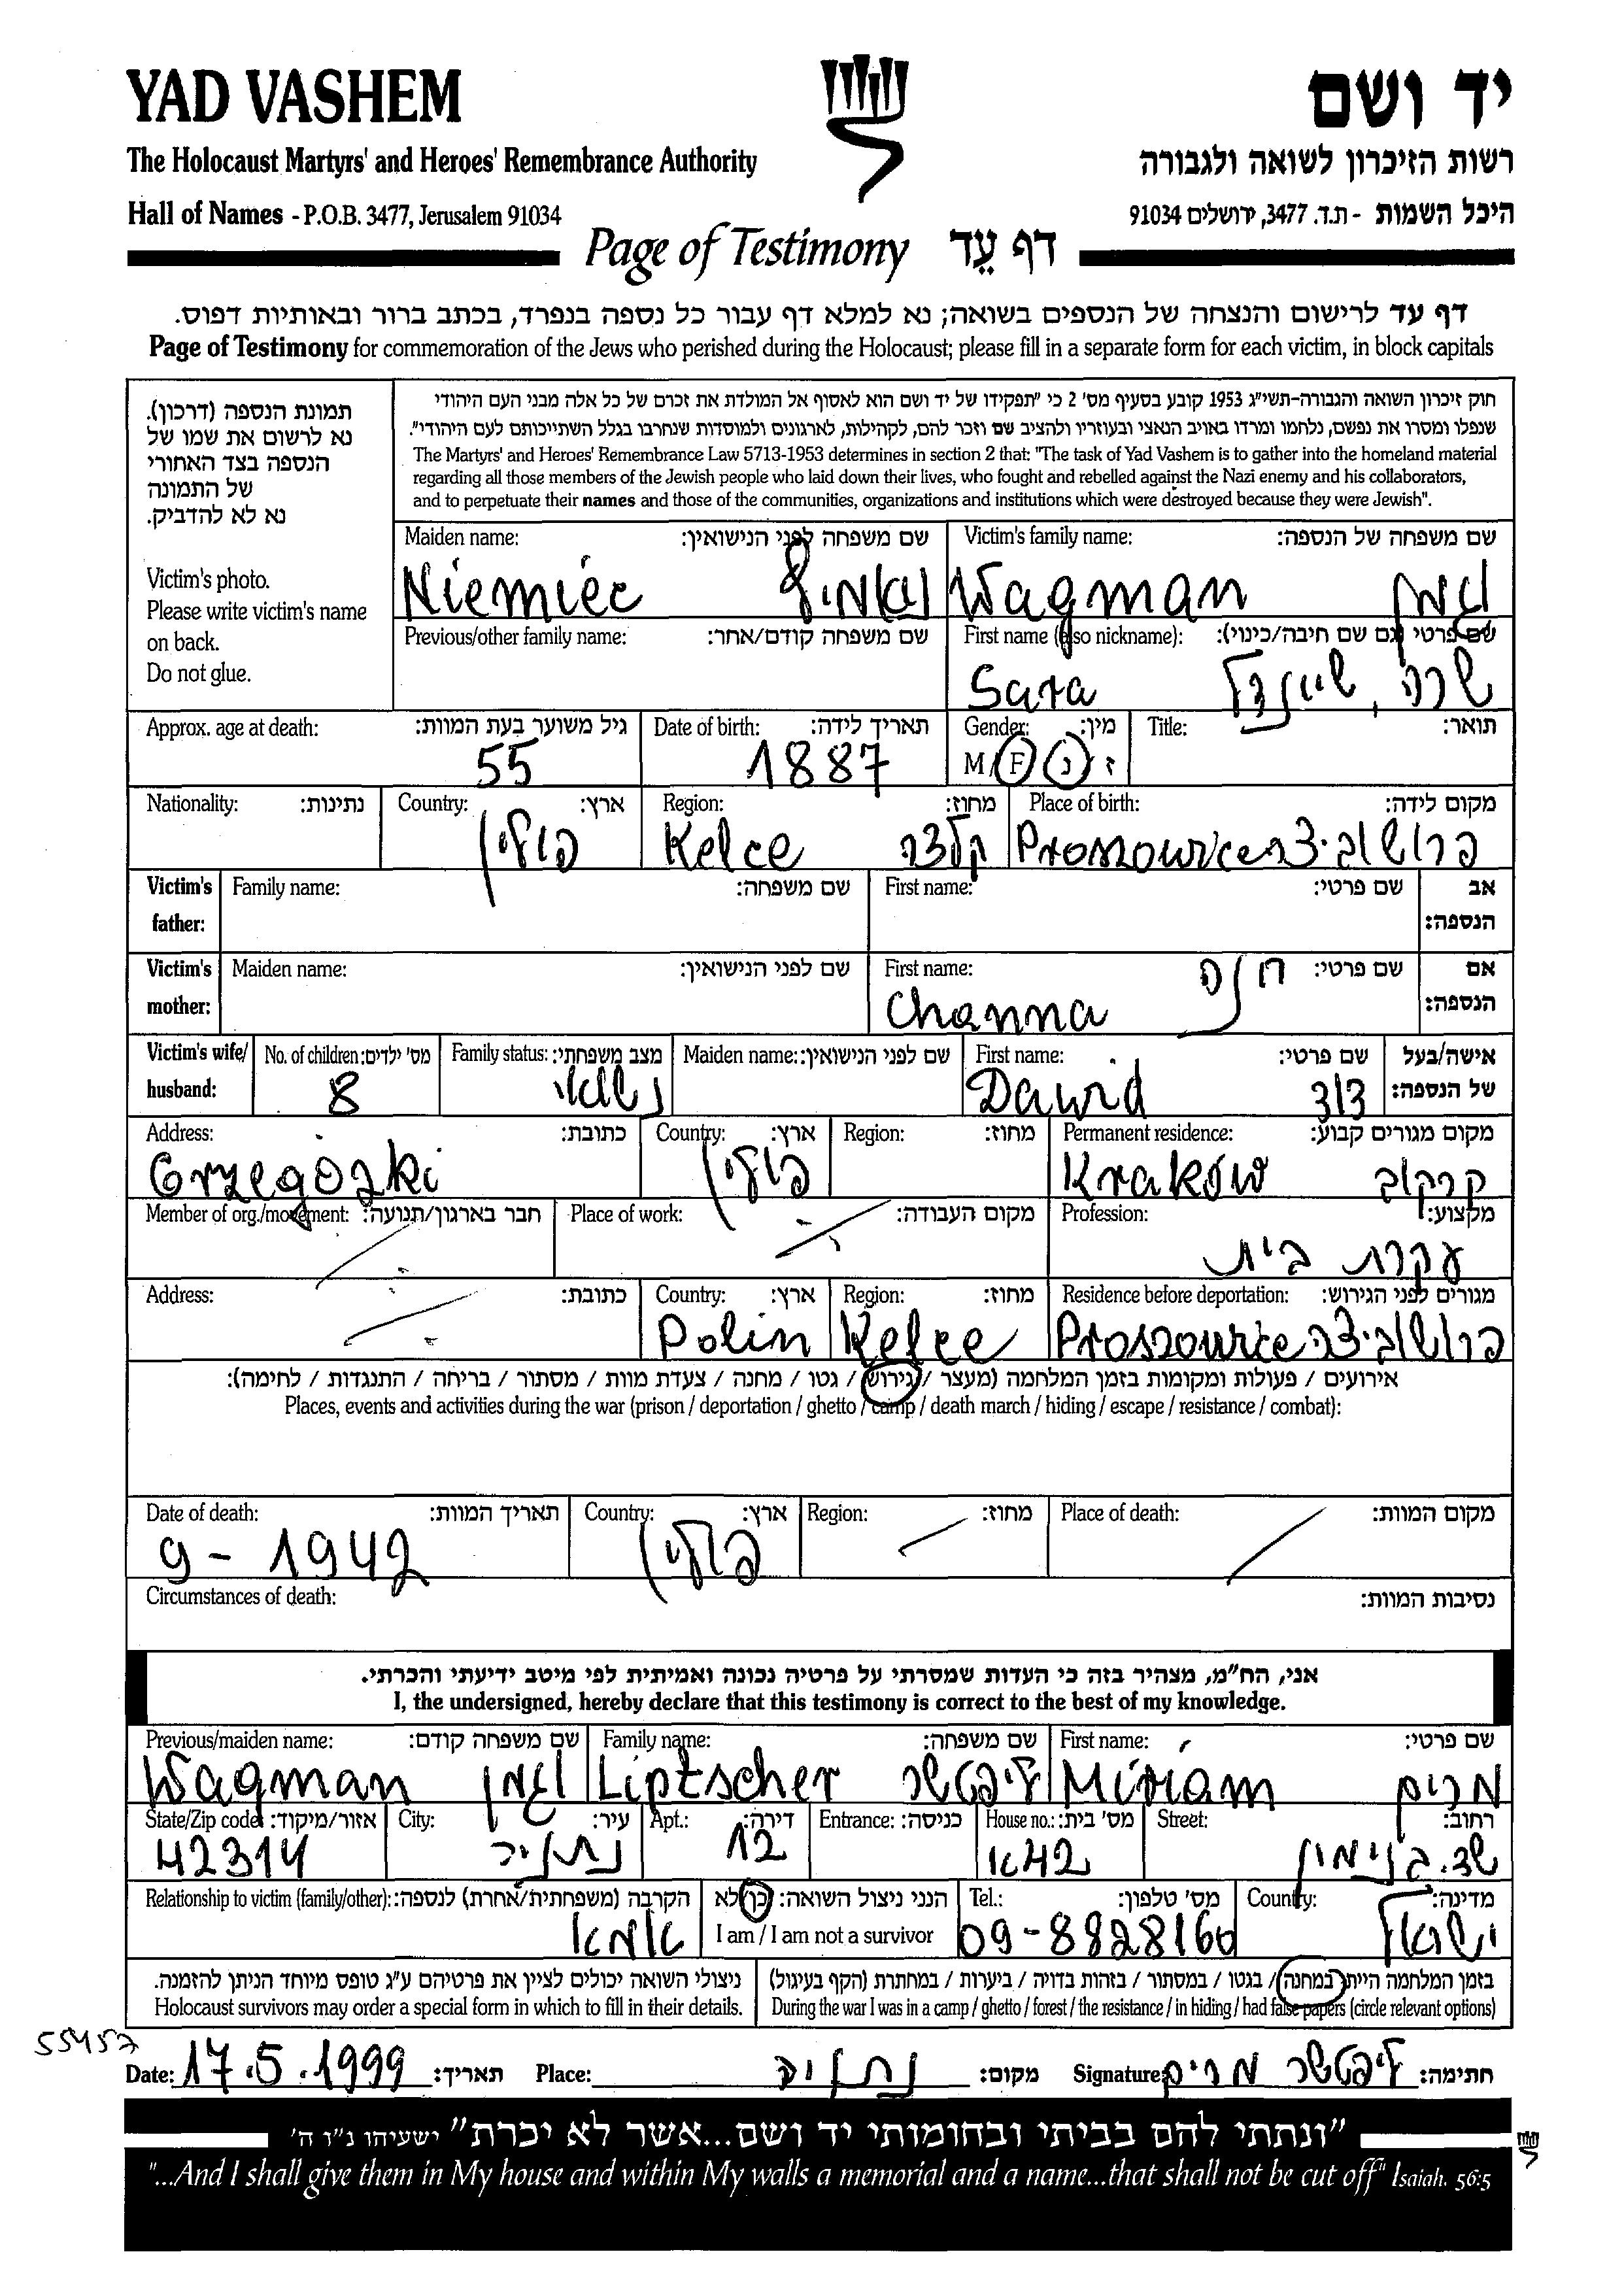 YAD VASHEM
יד ושם
The Holocaust Martyrs' and Heroes' Remembrance Authority
רשות הזיכרון לשואה ולגבורה
Hall of Names - P.O.B. 3477, Jerusalem 91034
היכל השמות - ת.ד. 3477, ירושלים 91034
Page of Testimony דף עֵד
דף עד לרישום והנצחה של הנספים בשואה; נא למלא דף עבור כל נספה בנפרד, בכתב ברור ובאותיות דפוס.
Page of Testimony for commemoration of the Jews who perished during the Holocaust; please fill in a separate form for each victim, in block capitals
תמונת הנספה (דרכון).
נא לרשום את שמו של
הנספה בצד האחורי
של התמונה
נא לא להדביק.
Victim's photo.
Please write victim's name
on back.
Do not glue.
חוק זיכרון השואה והגבורה-תשי"ג 1953 קובע בסעיף מס' 2 כי "תפקידו של יד ושם הוא לאסוף אל המולדת את זכרם של כל אלה מבני העם היהודי
שנפלו ומסרו את נפשם, נלחמו ומרדו באויב הנאצי ובעוזריו ולהציב שם וזכר להם, לקהילות, לארגונים ולמוסדות שנחרבו בגלל השתייכותם לעם היהודי".
The Martyrs' and Heroes' Remembrance Law 5713-1953 determines in section 2 that: "The task of Yad Vashem is to gather into the homeland material
regarding all those members of the Jewish people who laid down their lives, who fought and rebelled against the Nazi enemy and his collaborators,
and to perpetuate their names and those of the communities, organizations and institutions which were destroyed because they were Jewish".
Maiden name: שם משפחה לפני הנישואין: Victim's family name: שם משפחה של הנספה:
Niemiec Wagman וגמן
Previous/other family name: שם משפחה קודם/אחר: First name (also nickname): שם פרטי (גם שם חיבה/כינוי):
Sara שרה, שיינדל
Approx. age at death: גיל משוער בעת המוות: Date of birth: תאריך לידה: Gender: מין: Title: תואר:
55 1887 M / F ז נ
Nationality: נתינות: Country: ארץ: Region: מחוז: Place of birth: מקום לידה:
פולין Kelce קלצה Proszowice פרושוביצה
Victim's father: Family name: שם משפחה: First name: שם פרטי: אב הנספה:
Victim's mother: Maiden name: שם לפני הנישואין: First name: שם פרטי: אם הנספה:
Channa חנה
Victim's wife/ husband: No. of children: מס' ילדים: Family status: מצב משפחתי: Maiden name: שם לפני הנישואין: First name: שם פרטי: אישה/בעל של הנספה:
8 נשואי Dawid דוד
Address: כתובת: Country: ארץ: Region: מחוז: Permanent residence: מקום מגורים קבוע:
Grzegózki פולין Kraków קרקוב
Member of org./movement: חבר בארגון/תנועה: Place of work: מקום העבודה: Profession: מקצוע:
עקרת בית
Address: כתובת: Country: ארץ: Region: מחוז: Residence before deportation: מגורים לפני הגירוש:
Polin Kelce Proszowice פרושוביצה
אירועים / פעולות ומקומות בזמן המלחמה (מעצר / גירוש / גטו / מחנה / צעדת מוות / מסתור / בריחה / התנגדות / לחימה):
Places, events and activities during the war (prison / deportation / ghetto / camp / death march / hiding / escape / resistance / combat):
Date of death: תאריך המוות: Country: ארץ: Region: מחוז: Place of death: מקום המוות:
9 - 1942 פולין
Circumstances of death: נסיבות המוות:
אני, הח"מ, מצהיר בזה כי העדות שמסרתי על פרטיה נכונה ואמיתית לפי מיטב ידיעתי והכרתי.
I, the undersigned, hereby declare that this testimony is correct to the best of my knowledge.
Previous/maiden name: שם משפחה קודם: Family name: שם משפחה: First name: שם פרטי:
Wagman וגמן Liptscher ליפטשר Miriam מרים
State/Zip code: אזור/מיקוד: City: עיר: Apt.: דירה: Entrance: כניסה: House no.: מס' בית: Street: רחוב:
42314 נתניה 12 42א שד. בנימין
Relationship to victim (family/other): הקרבה (משפחתית/אחרת) לנספה: הנני ניצול השואה: כן/לא Tel.: מס' טלפון: Country: מדינה:
אמא I am / I am not a survivor 09-8828160 ישראל
ניצולי השואה יכולים לציין את פרטיהם ע"ג טופס מיוחד הניתן להזמנה. בזמן המלחמה הייתי במחנה / בגטו / במסתור / בזהות בדויה / ביערות / במחתרת (הקף בעיגול)
Holocaust survivors may order a special form in which to fill in their details. During the war I was in a camp / ghetto / forest / the resistance / in hiding / had false papers (circle relevant options)
55457
Date: 17.5.1999 תאריך: Place: נתניה מקום: Signature: ליפטשר מרים חתימה:
"ונתתי להם בביתי ובחומותי יד ושם...אשר לא יכרת" ישעיהו נ"ו ה'
"...And I shall give them in My house and within My walls a memorial and a name...that shall not be cut off" Isaiah. 56:5